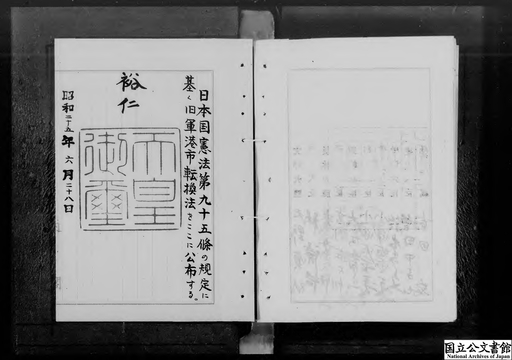 日本国憲法第九十五條の規定に
基く旧軍港市転換法をここに公布する。
裕仁
天皇
御璽
昭和二十五年六月二十八日
国立公文書館
National Archives of Japan